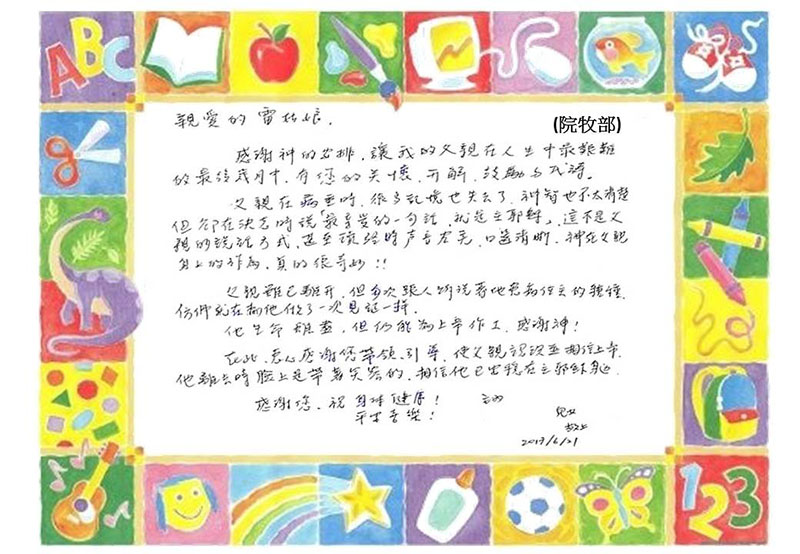 ABC
親愛的雷姑娘，
(院牧部)
感謝神的安排，讓我的父親在人生中最艱難
的最後歲月中，有您的關懷，開解，鼓勵與代禱。
父親在病重時，很多記憶也失去了，神智也不太清楚
但卻在決志時說最喜愛的一句話，就是主耶穌，這不是父
親的說話方式，甚至讀經時声音左亮，口齒清晰，神在父親
身上的作為，真的很奇妙!!
父親雖已離開，但多次跟人
仿彿就在為他做了一次見証一樣。
他生命雖盡，但仍能為上帝作工，感謝神！
在此，衷心感謝您帶領，引導，使父親認識並相信上帝
他離去時臉上是帶著笑容的，相信他已安穩在主耶穌
感謝您，祝身体健康！
平安喜樂！
兒女
敬上
2017/6/21
123